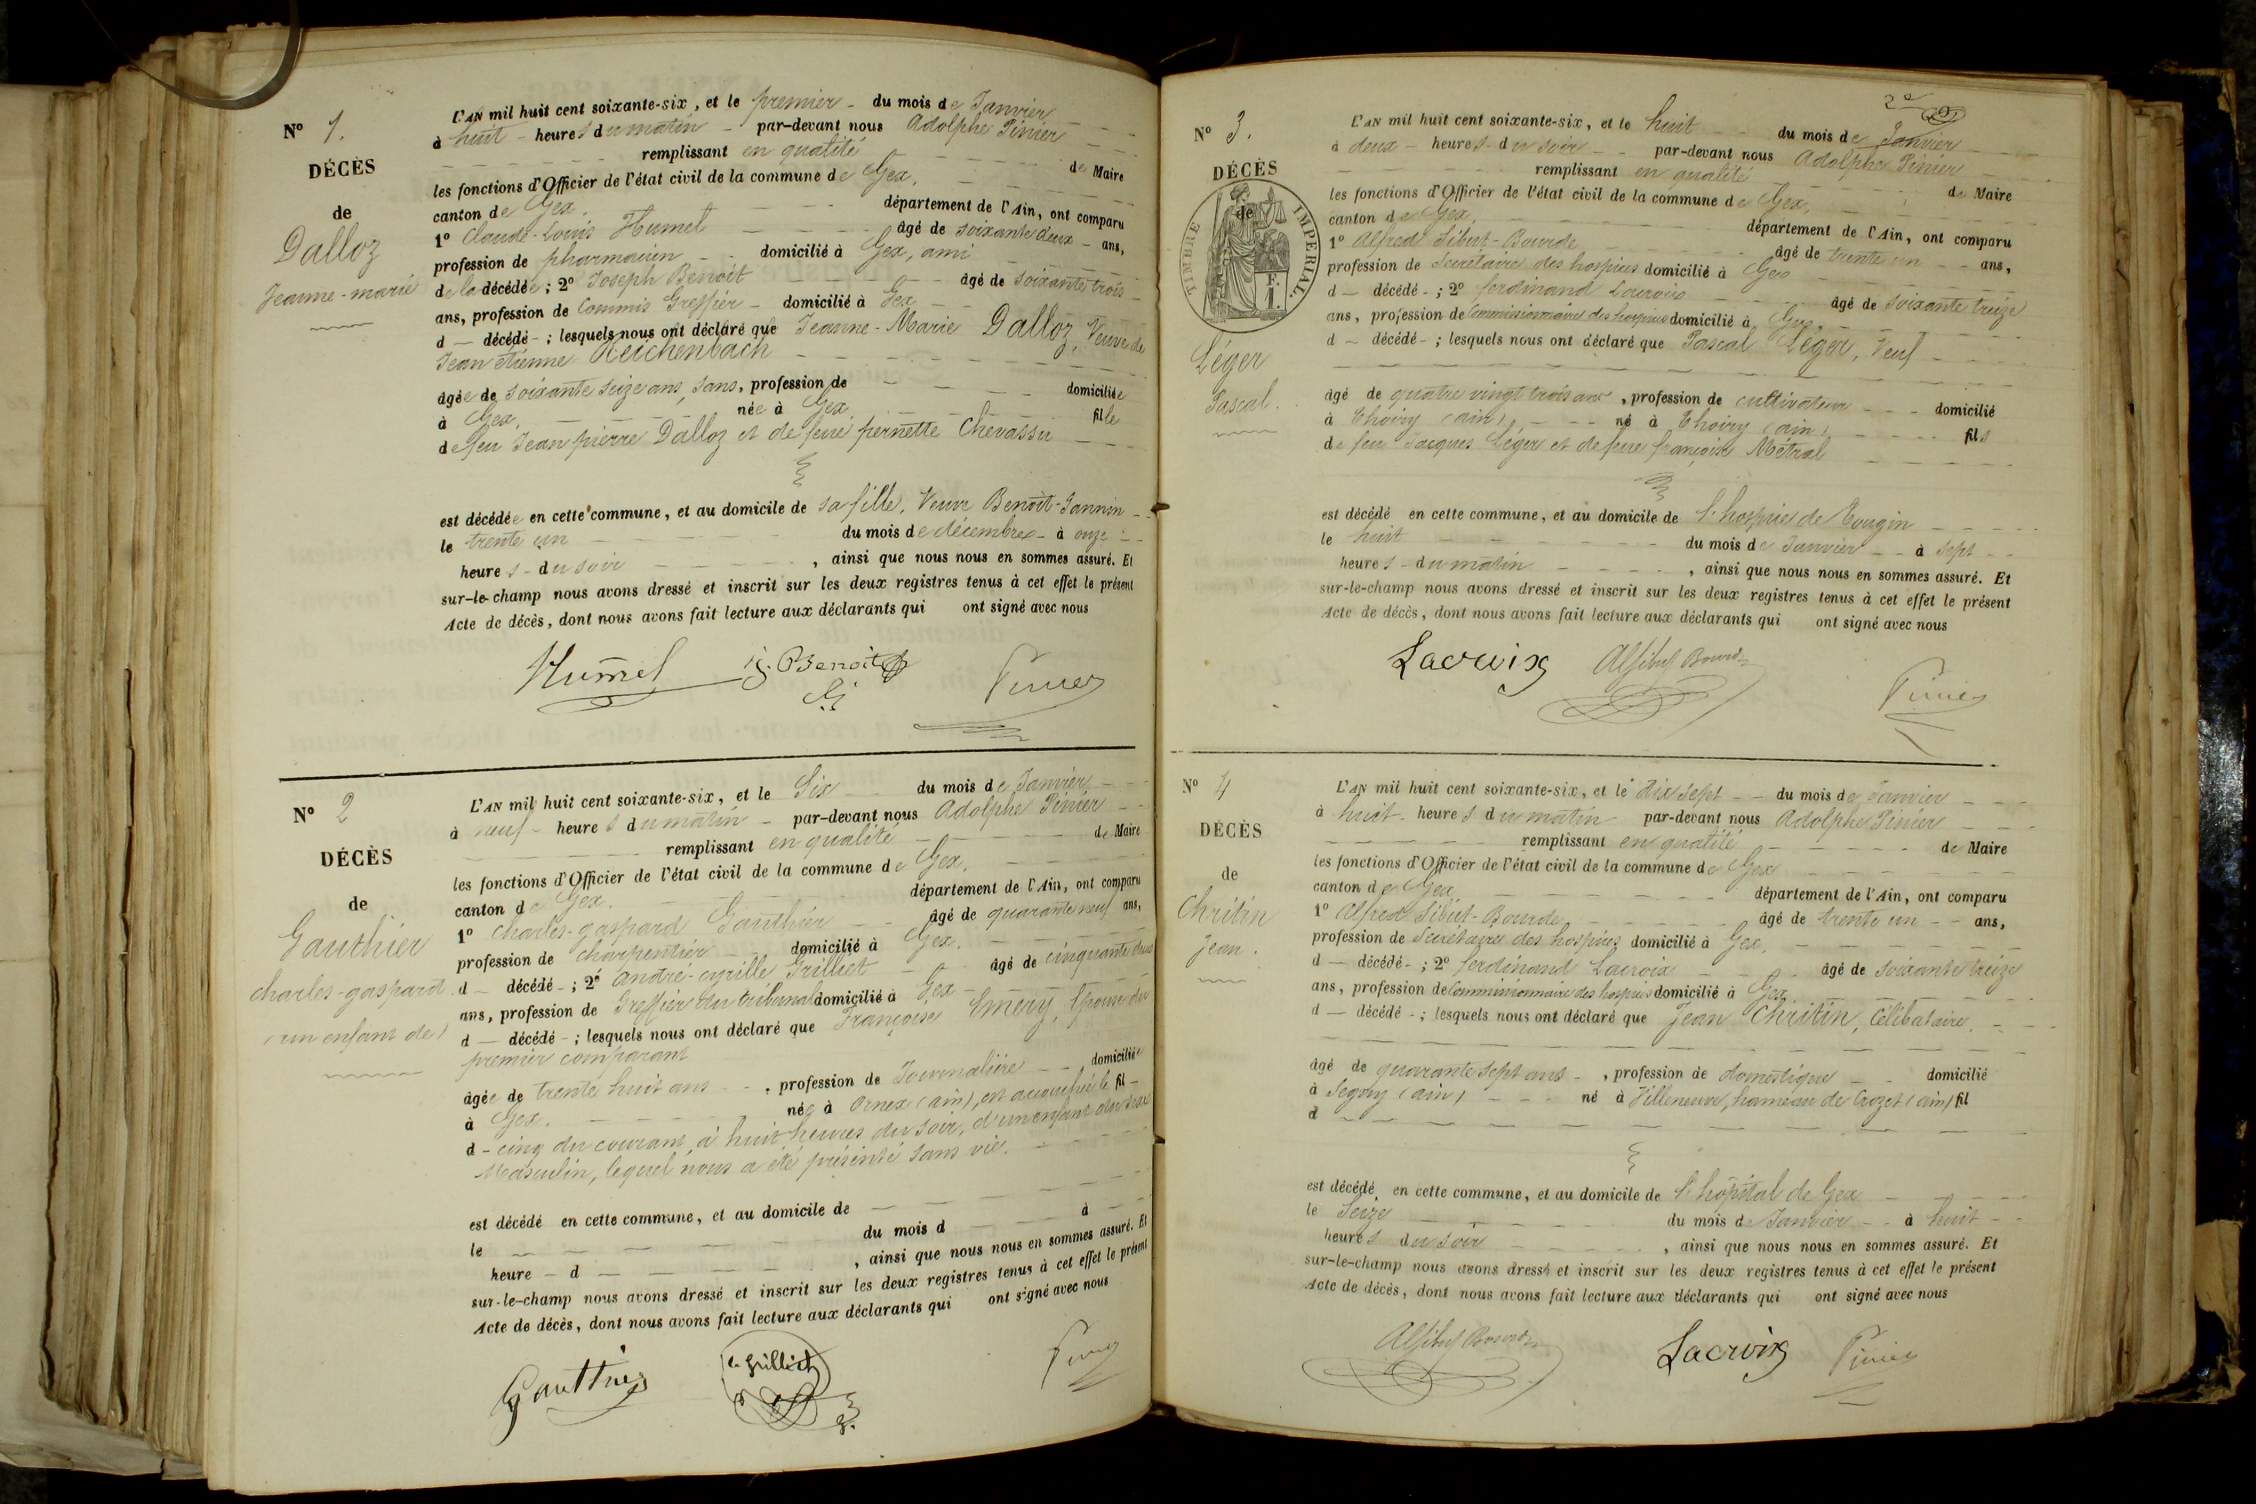 N° 1.
DÉCÈS
de
Dalloz
Jeanne-marie
L'AN mil huit cent soixante-six, et le premier - du mois de Janvier
à huit - heures du matin - par-devant nous Adolphe Pinier
remplissant en qualité de Maire
les fonctions d'Officier de l'état civil de la commune de Gex,
canton de Gex. département de l'Ain, ont comparu
1° Claude-Louis Humel âgé de soixante deux - ans,
profession de pharmacien domicilié à Gex, ami
de la décédée; 2° Joseph Benoit âgé de soixante trois
ans, profession de Commis Greffier - domicilié à Gex
d — décédé - ; lesquels nous ont déclaré que Jeanne-Marie Dalloz, Veuve de
Jean Etienne Reichenbach
âgée de soixante seize ans, sans, profession de domiciliée
à Gex, née à Gex fille
de feu Jean pierre Dalloz et de feue pernette Chevassu
est décédée en cette commune, et au domicile de sa fille, Veuve Benoit-Jannin
le trente un du mois de décembre - à onze
heures - du soir , ainsi que nous nous en sommes assuré. Et
sur-le-champ nous avons dressé et inscrit sur les deux registres tenus à cet effet le présent
Acte de décès, dont nous avons fait lecture aux déclarants qui ont signé avec nous
Humel J. Benoit Pinier
N° 2
DÉCÈS
de
Gauthier
charles-gaspard
(un enfant de)
L'AN mil huit cent soixante-six, et le Six du mois de Janvier
à neuf - heures du matin - par-devant nous Adolphe Pinier
remplissant en qualité de Maire
les fonctions d'Officier de l'état civil de la commune de Gex,
canton de Gex. département de l'Ain, ont comparu
1° Charles-gaspard Gauthier âgé de quarante neuf ans,
profession de Charpentier domicilié à Gex.
d — décédé - ; 2° andré-cyrille Grilliet âgé de cinquante deux
ans, profession de Greffier du tribunal domicilié à Gex
d — décédé - ; lesquels nous ont déclaré que Françoise Emery, épouse du
premier comparant
âgée de trente huit ans , profession de Journalière domiciliée
à Gex. née à Ornex (ain), est accouchée le fil -
d - cinq du courant, à huit heures du soir, d'un enfant du sexe
Masculin, lequel nous a été présenté sans vie.
est décédé en cette commune, et au domicile de
le du mois d à
heure - d , ainsi que nous nous en sommes assuré. Et
sur-le-champ nous avons dressé et inscrit sur les deux registres tenus à cet effet le présent
Acte de décès, dont nous avons fait lecture aux déclarants qui ont signé avec nous
Gauthier Grilliet Pinier
2e
N° 3.
DÉCÈS
de
TIMBRE IMPERIAL.
Léger
Pascal.
L'AN mil huit cent soixante-six, et le huit du mois de Janvier
à deux - heures - du soir par-devant nous Adolphe Pinier
remplissant en qualité de Maire
les fonctions d'Officier de l'état civil de la commune de Gex,
canton de Gex, département de l'Ain, ont comparu
1° Alfred Sibut-Bourde âgé de trente un ans,
profession de Secrétaire des hospices domicilié à Gex
d — décédé - ; 2° ferdinand Lacroix âgé de soixante treize
ans, profession de Commissionnaire des hospices domicilié à Gex,
d — décédé - ; lesquels nous ont déclaré que Pascal Léger, Veuf
âgé de quatre vingt trois ans , profession de cultivateur domicilié
à Thoiry (ain), né à Thoiry (ain), fils
de feu Jacques Léger et de feue françoise Métral
est décédé en cette commune, et au domicile de l'hospice de Tougin
le huit du mois de Janvier à sept
heures - du matin , ainsi que nous nous en sommes assuré. Et
sur-le-champ nous avons dressé et inscrit sur les deux registres tenus à cet effet le présent
Acte de décès, dont nous avons fait lecture aux déclarants qui ont signé avec nous
Lacroix Al Sibut Bourde Pinier
N° 4
DÉCÈS
de
Chritin
Jean.
L'AN mil huit cent soixante-six, et le dix sept du mois de Janvier
à huit - heures du matin par-devant nous Adolphe Pinier
remplissant en qualité de Maire
les fonctions d'Officier de l'état civil de la commune de Gex
canton de Gex département de l'Ain, ont comparu
1° Alfred Sibut-Bourde âgé de trente un ans,
profession de Secrétaire des hospices domicilié à Gex,
d — décédé - ; 2° ferdinand Lacroix âgé de soixante treize
ans, profession de Commissionnaire des hospices domicilié à Gex
d — décédé - ; lesquels nous ont déclaré que Jean Chritin, Célibataire
âgé de quarante sept ans - , profession de domestique domicilié
à Segny (ain) né à Villeneuve, hameau de Crozet (ain) fil
d
est décédé en cette commune, et au domicile de l'hôpital de Gex
le Seize du mois de Janvier à huit
heures du soir , ainsi que nous nous en sommes assuré. Et
sur-le-champ nous avons dressé et inscrit sur les deux registres tenus à cet effet le présent
Acte de décès, dont nous avons fait lecture aux déclarants qui ont signé avec nous
Al Sibut Bourde Lacroix Pinier